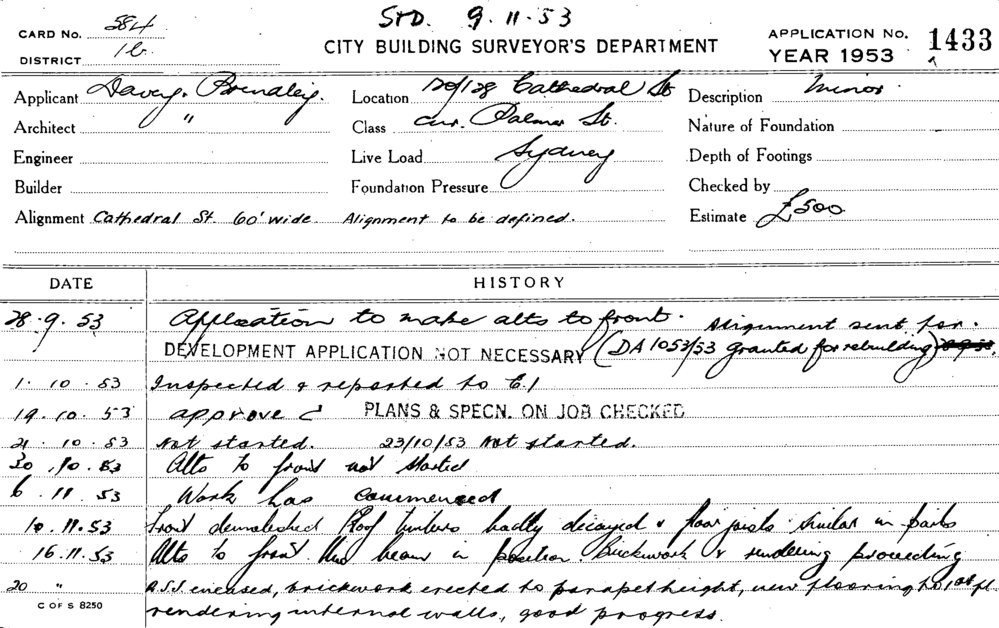 STD. 9.11.53
CARD No. 584
DISTRICT 1b.
CITY BUILDING SURVEYOR'S DEPARTMENT
APPLICATION No. 1433
YEAR 1953
Applicant Davey. Brindley.
Location 120/128 Cathedral St
Description Minor.
Architect "
Class Cnr. Palmer St.
Nature of Foundation
Engineer
Live Load Sydney
Depth of Footings
Builder
Foundation Pressure
Checked by
Alignment Cathedral St. 60' wide. Alignment to be defined.
Estimate £500
DATE HISTORY
28.9.53 Application to make alts to front. Alignment sent for.
DEVELOPMENT APPLICATION NOT NECESSARY (DA 1053/53 Granted for rebuilding)
1.10.53 Inspected & reported to E.1
19.10.53 approved PLANS & SPECN. ON JOB CHECKED
21.10.53 Not started. 23/10/53 Not started.
30.10.53 Alts to front not started
6.11.53 Work has commenced
10.11.53 Front demolished Roof timbers badly decayed & floor joists similar in parts
16.11.53 Alts to front beam in position brickwork & rendering proceeding
20 " R.S.J. encased, brickwork erected to parapet height, new flooring to 1st fl.
rendering internal walls, good progress.
C OF S 8250